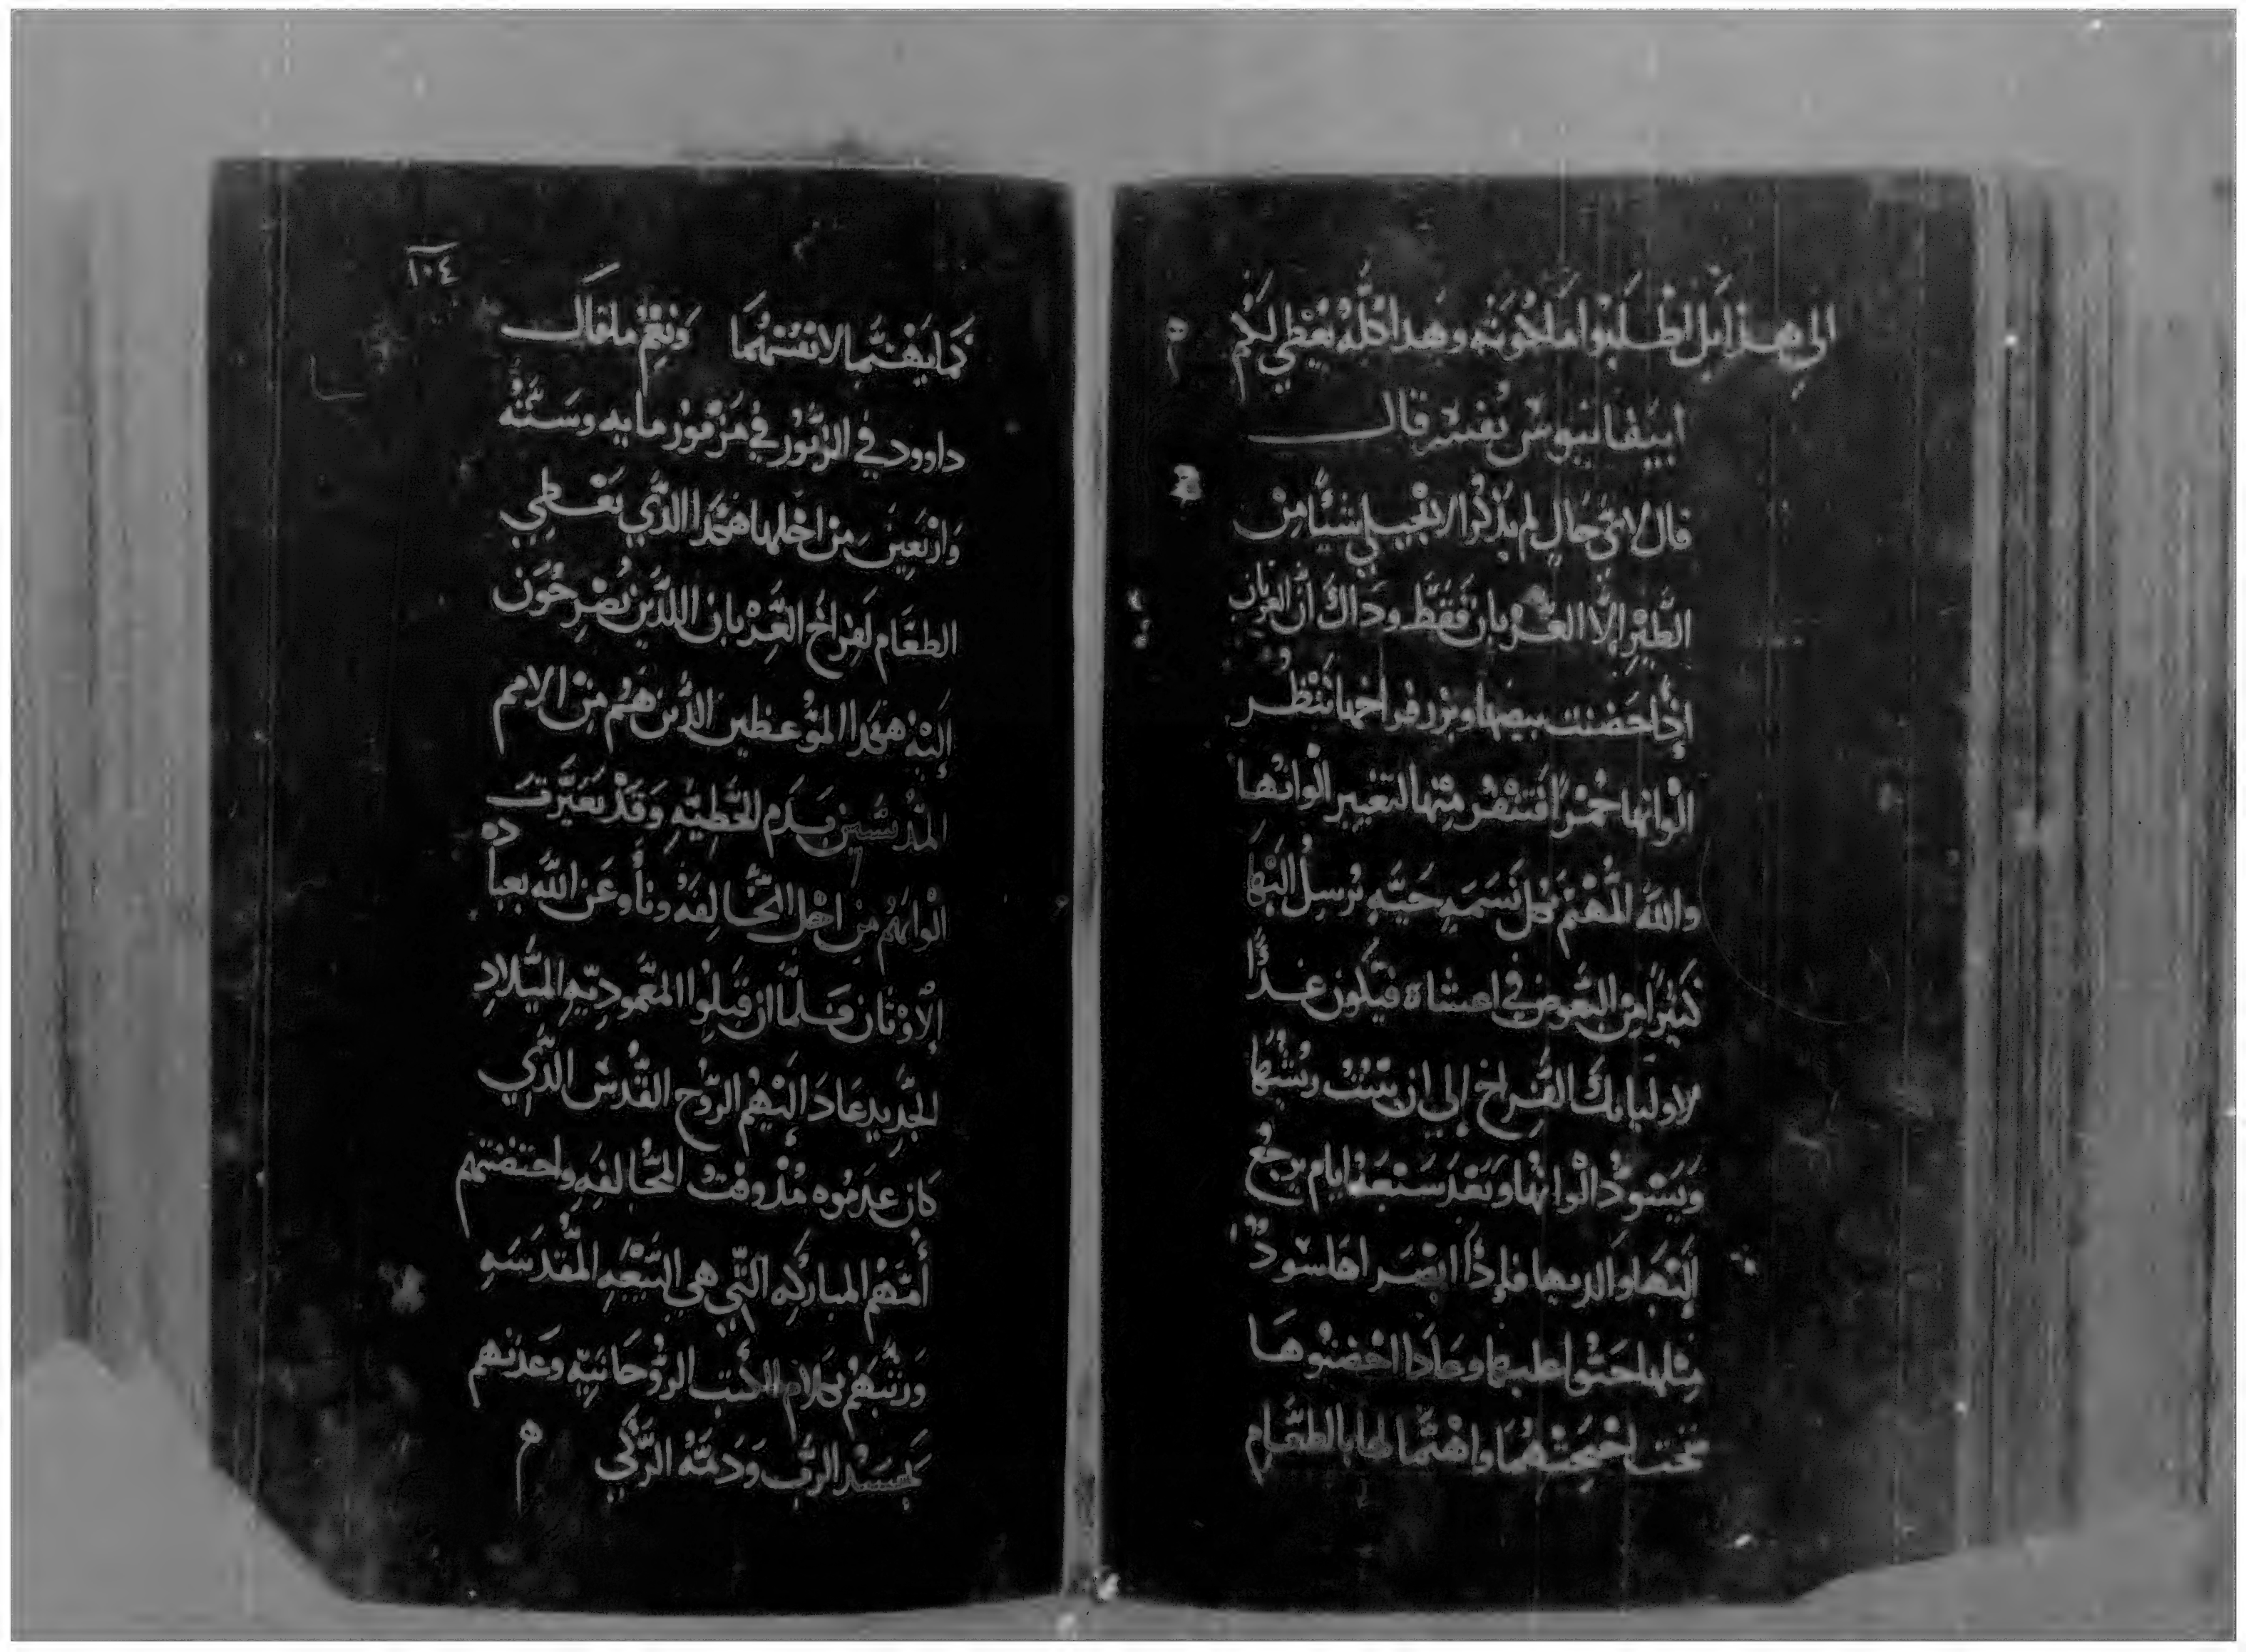 الي هذا بل اطلبوا ملكوته وهذا كله يعطي لكم
ابيفانيوس يفسر قال
قال لاي حال لم يذكر الانجيلي شيئا من
الطير الا الغربان فقط وداك ان الغربان
اذا حضنت بيضها وبرز فراخها تنظر
الوانها حمرا فتنفر منها لتغيير الوانها
والله المهتم بكل نسمه حيه يرسل اليها
كثيرا من البعوض في اعشاه فيكون غدا
لاوليايك الفراخ إلي ان ينبت ريشها
ويسود الوانها وبعد سبعة ايام يرجع
إليها والديها فإذا ابصراها سود
مثلها احنوا عليها وعادا احضنوها
تحت اجنحتهما واهتما لها بالطعام
كما يهتما لانفسهما ونعم ما قال
داوود في الزبور في مزمور مايه وسته
واربعين من اجلها هكدا الدي يعطي
الطعام لفراخ الغربان اللدين يصرخون
إليه هكدا الموعظين الدين هم من الامم
المدنسين بدم الخطيه وقد تغيرت
الوانهم من اجل المخالفه وناوا عن الله بعباده
الاوثان فلما ان قبلوا المعموديه الميلاد
الجديد عاد إليهم الروح القدس الدي
كان عدموه مند وقت المخالفه واحتضنتهم
أمهم المباركه التي هي البيعه المقدسه
وربتهم بكلام الكتب الروحانيه وغدتهم
بجسد الرب ودمه الزكي
١٠٤